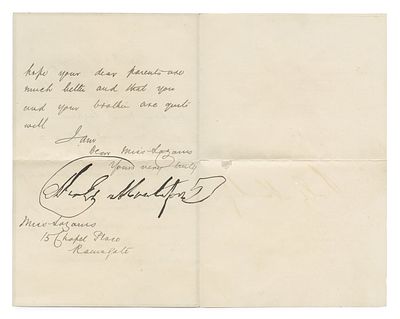 hope your dear parents are
much better and that you
and your brother are quite
well
I am
Dear Miss Lazarus
Yours very truly
Miss Lazarus
15 Chapel Place
Ramsgate